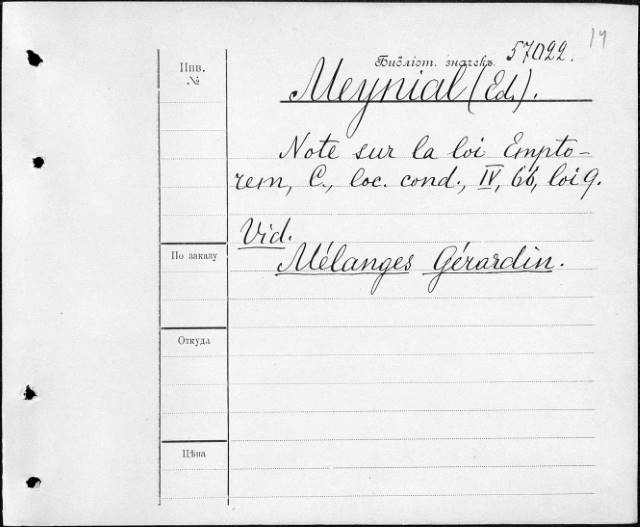 19
Библіот. значекъ 57022.
Инв.
№
Meynial (Ed.).
Note sur la loi Empto-
rem, C., loc. cond., IV, 66, loi 9.
Vid.
Mélanges Gérardin.
По заказу
Откуда
Цѣна